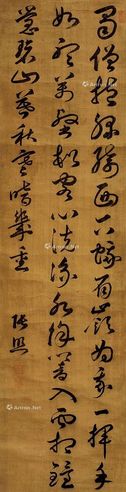 蜀僧抱綠綺西下峨眉峰為我一揮手
如聽萬壑松客心洗流水餘響入霜鐘
碧山暮秋雲暗幾重 張照
Artron.Net